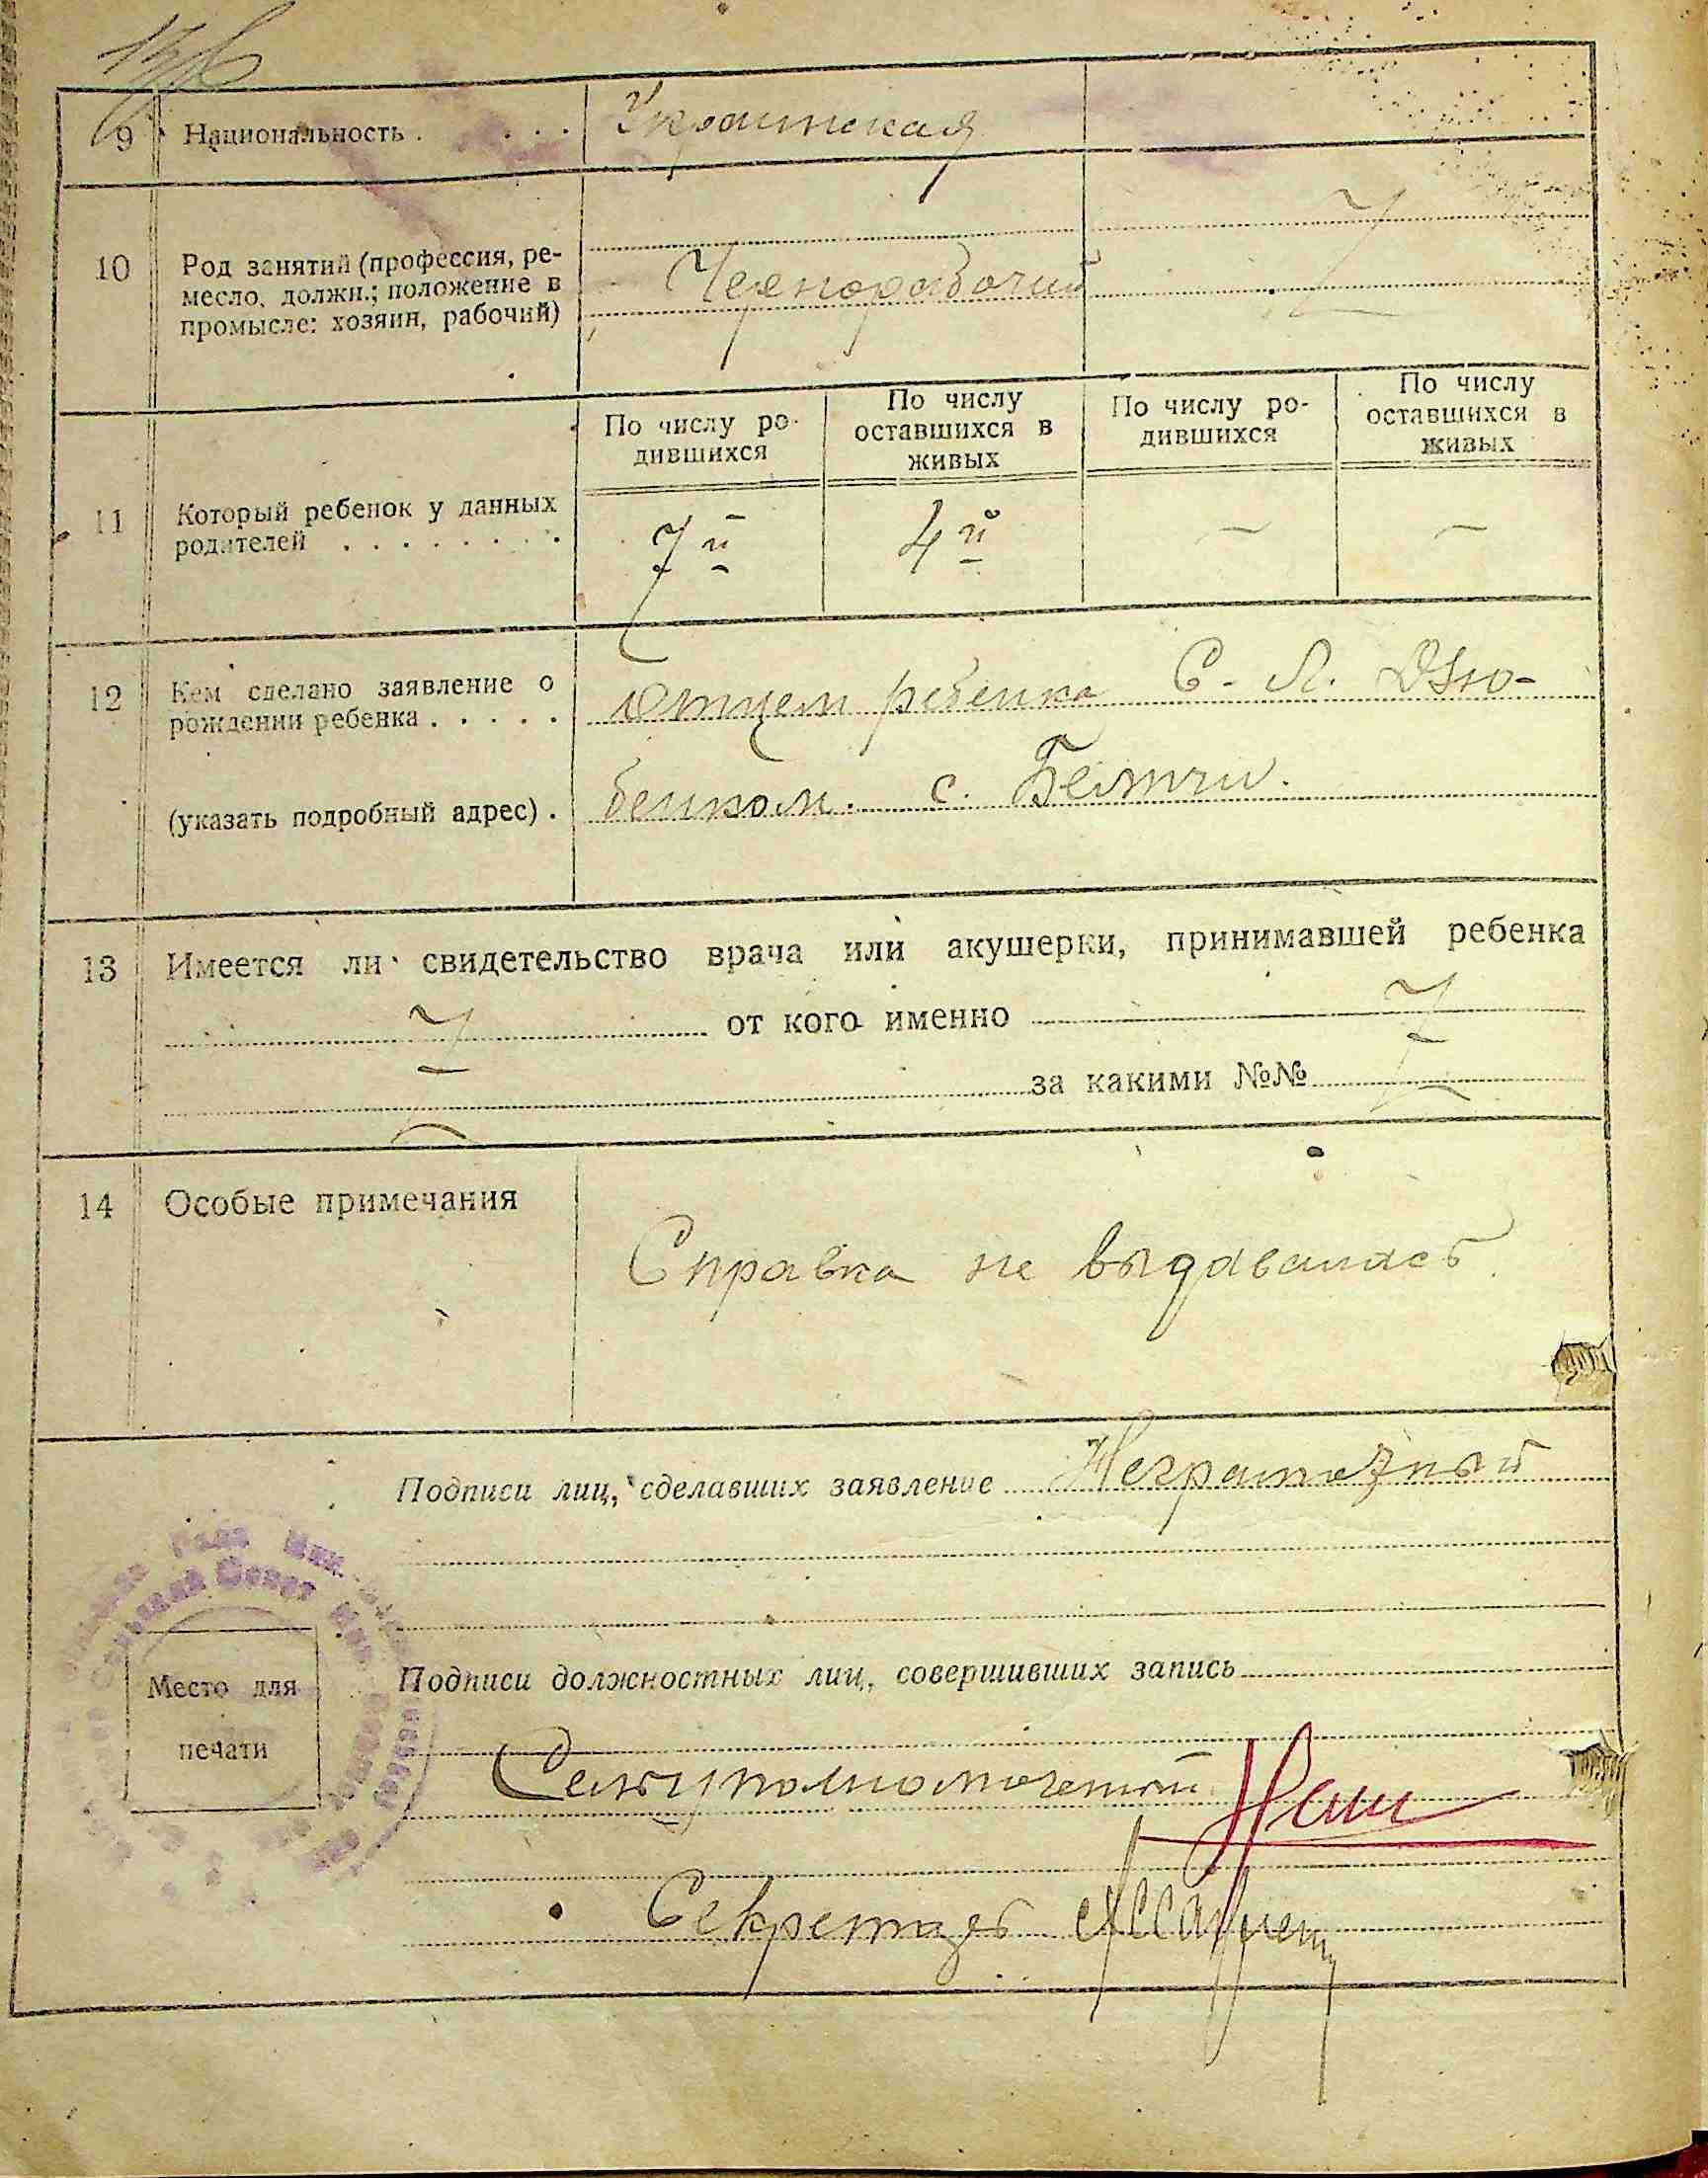 9 Национальность . . . . Украинская
10 Род занятий (профессия, ре-
месло, должн.; положение в
промысле: хозяин, рабочий)
Чернорабочий
По числу ро-
дившихся
По числу
оставшихся в
живых
По числу ро-
дившихся
По числу
оставшихся в
живых
11 Который ребенок у данных
родителей . . . . . . . .
7й 4й - -
12 Кем сделано заявление о
рождении ребенка . . . . .
Отцем ребенка С. Л. Дзю-
(указать подробный адрес) .
бенком. с.
13 Имеется ли свидетельство врача или акушерки, принимавшей ребенка
от кого именно
за какими №№
14 Особые примечания
Справка не выдавалась
Подписи лиц, сделавших заявление Неграмотный
Подписи должностных лиц, совершивших запись
Место для
печати
Сельуполномоченный
Секретарь